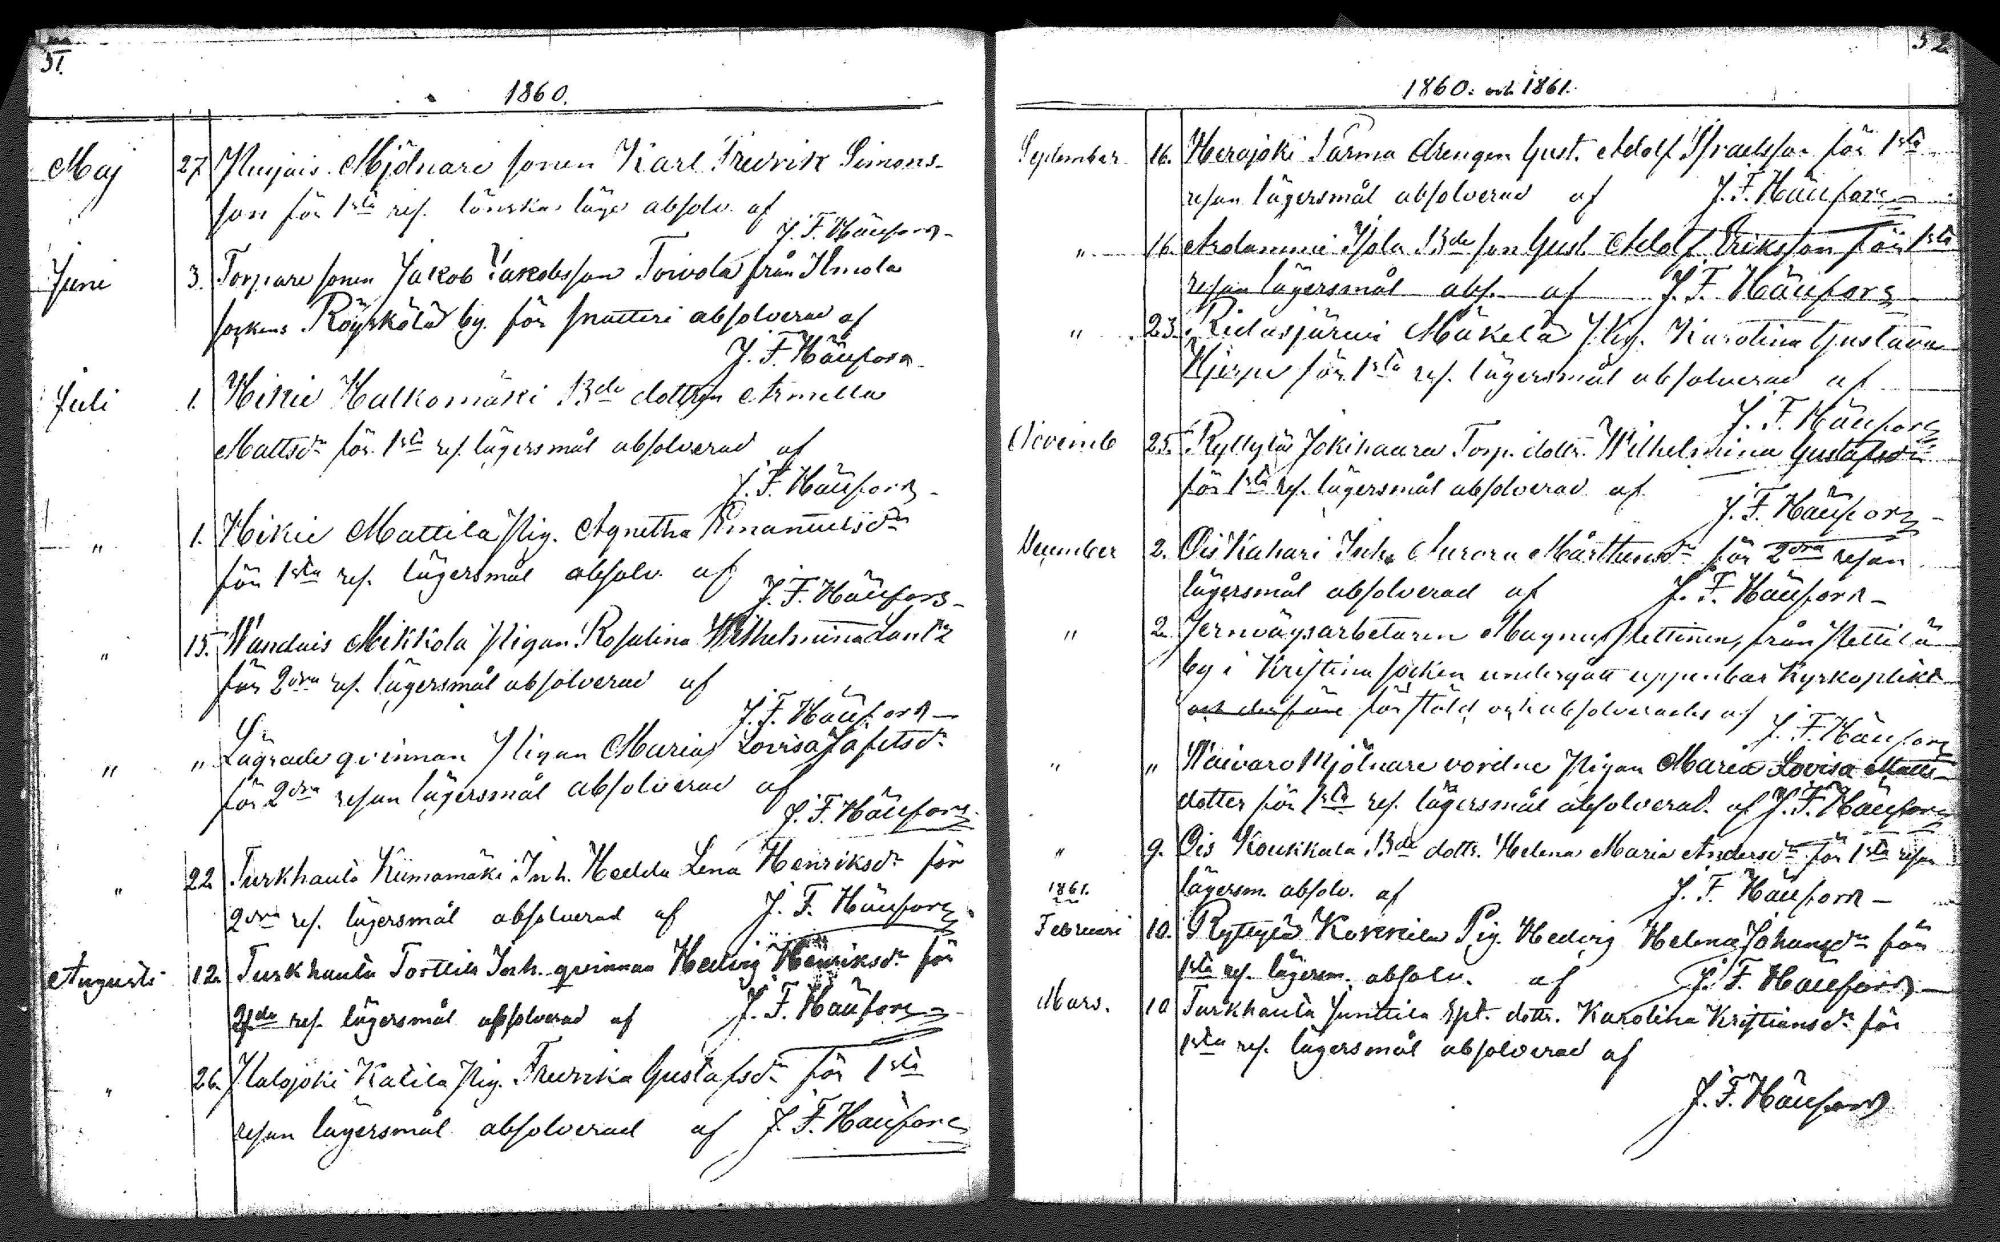 51.
1860.
Maj 27. Mjölnare sonen Karl Fredrik Simons-
son för 1sta res. lönska läge absolv. af
J. F. Häufors
Juni 3. Torpare sonen Jakob Jakobsson Toivola från Ilmola
sockens Röyskölä by. för snatteri absolverad af
J. F. Häufors
Juli 1. Hikiä Halkomäki Bde dottren Armella
Mattsdr för 1sta res. lägersmål absolverad af
J. F. Häufors
" 1. Hikiä Mattila Pig. Agnetha Emanuelsdr
för 1sta res. lägersmål absolv. af
J. F. Häufors
" 15. Mikkola Pigan Rosalina Wilhelmina Lantz
för 2dra res. lägersmål absolverad af
J. F. Häufors
" " Lägrade qvinnan Pigan Maria Lovisa Jafetsdr
för 2dra resan lägersmål absolverad af
J. F. Häufors
" 22. Turkhauta Kiimamäki Inh. Hedda Lena Henriksdr för
2dra res. lägersmål absolverad af J. F. Häufors
Augusti 12. Turkhauta Torttila Inh. qvinnan Hedvig Henriksdr för
res. lägersmål absolverad af J. F. Häufors
" 26. Halojoki Katila Pig. Fredrika Gustafsdr för 1sta
resan lägersmål absolverad af J. F. Häufors
52
1860. och 1861.
September 16. Herajoki Parma drengen Gust. Adolf Israelsson för 1sta
resan lägersmål absolverad af J. F. Häufors
" 16. Isola Bde son Gust. Adolf Eriksson för 1sta
resan lägersmål abs. af J. F. Häufors
" 23. Ridasjärvi Mäkelä Pig. Karolina Gustava
Hjerpe för 1sta res. lägersmål absolverad af
J. F. Häufors
Novemb 25. Ryttylä Jokihaara Torp. dottr. Wilhelmina Gustafsdr
för 1sta res. lägersmål absolverad af
J. F. Häufors
December 2. Ois Kahari Inh. Aurora Mårttensdr för 2dra resan
lägersmål absolverad af J. F. Häufors
" 2. Jernvägsarbetaren Magnus Pettinen, från Pettilä
by i Kristina socken undergått uppenbar Kyrkoplikt
förstöld och absolverades af J. F. Häufors
" " Mjölnare vordne Pigan Maria Lovisa Matts-
dotter för 1sta res. lägersmål absolverad. af J. F. Häufors
" 9. Ois Koukkala Bde dottr. Helena Maria Andersdr för 1sta resan
lägersm. absolv. af J. F. Häufors
1861.
Februari 10. Ryttylä Kokkila Pig. Hedvig Helena Johansdr för
1sta res. lägersm. absolv. af J. F. Häufors
Mars. 10 Turkhauta Junttila Spt. dottr. Karolina Kristiansdr för
1sta res. lägersmål absolverad af
J. F. Häufors